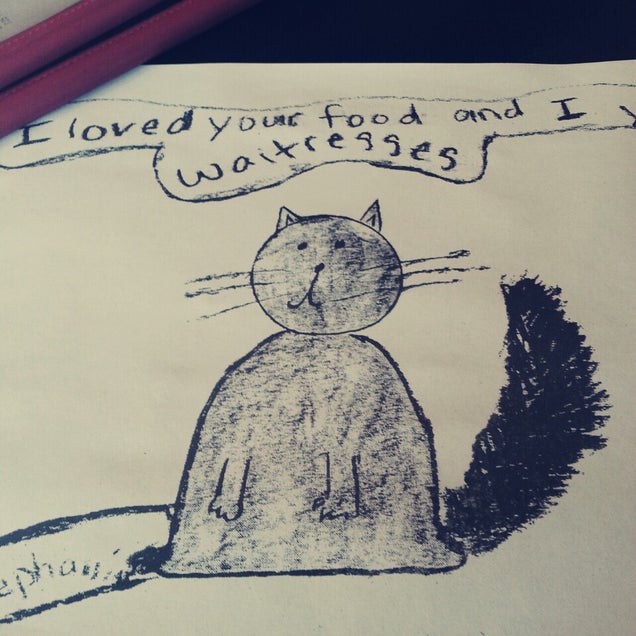 I loved your food and I
waitresses
ephanie